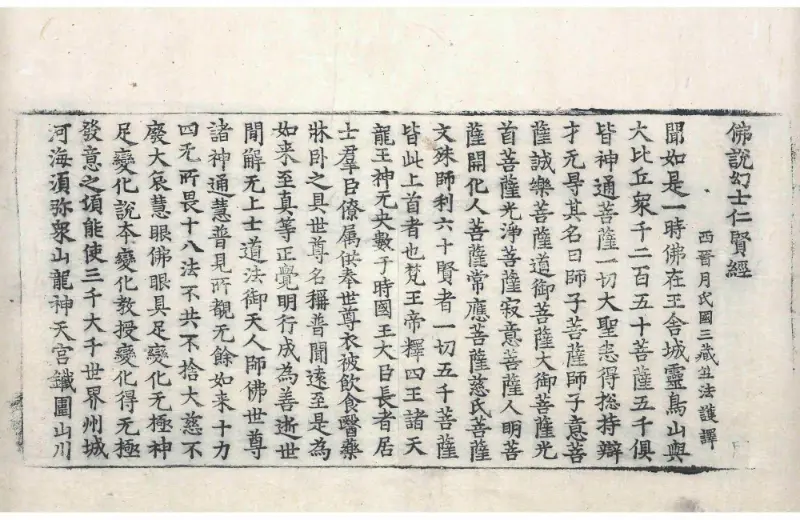 佛說幻士仁賢經
西晉月氏國三藏竺法護譯
聞如是一時佛在王舍城靈鳥山與
大比丘衆千二百五十菩薩五千俱
皆神通菩薩一切大聖悉得捴持辯
才无㝵其名曰師子菩薩師子意菩
薩誠樂菩薩道御菩薩大御菩薩光
首菩薩光淨菩薩寂意菩薩人明菩
薩開化人菩薩常應菩薩慈氏菩薩
文殊師利六十賢者一切五千菩薩
皆此上首者也梵王帝釋四王諸天
龍王神无央數于時國王大臣長者居
士羣臣僚属供奉世尊衣被飲食醫藥
牀卧之具世尊名稱普聞遠至是為
如来至真等正覺明行成為善逝世
間解无上士道法御天人師佛世尊
諸神通慧普見所覩无餘如来十力
四无所畏十八法不共不捨大慈不
廢大哀慧眼佛眼具足變化无極神
足變化說本變化教授變化得无極
發意之頃能使三千大千世界州城
河海湏弥衆山龍神天宮鐵圍山川